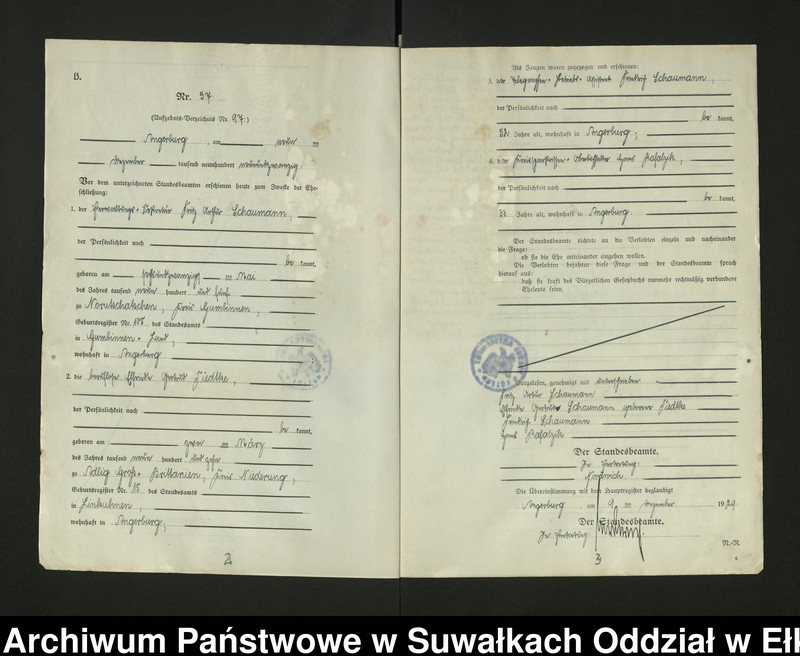 B.
Nr. 57
(Aufgebots-Verzeichnis Nr. 97)
Angerburg, am neun ten
Dezember tausend neunhundert neunundzwanzig.
Vor dem unterzeichneten Standesbeamten erschienen heute zum Zwecke der Ehe-
schließung:
1. der Verwaltungs-Sekretär Fritz Arthur Schaumann,
der Persönlichkeit nach
be kannt,
geboren am ten Mai
des Jahres tausend neun hundert und fünf
zu Norutschatschen, Kreis Gumbinnen,
Geburtsregister Nr. des Standesamts
in Gumbinnen-Land,
wohnhaft in Angerburg
2. die berufslose Gertrud Fiedtke,
der Persönlichkeit nach
be kannt,
geboren am ten März
des Jahres tausend neun hundert und zehn
zu Adlig Groß-Brittanien, Kreis Niederung,
Geburtsregister Nr. 15 des Standesamts
in Linkuhnen,
wohnhaft in Angerburg,
2
Als Zeugen waren zugezogen und erschienen:
3. der Telegraphen-Betriebs-Assistent Friedrich Schaumann,
der Persönlichkeit nach
be kannt,
Jahre alt, wohnhaft in Angerburg;
4. der Kreissparkassen- Hans Rafalzik,
der Persönlichkeit nach
be kannt,
Jahre alt, wohnhaft in Angerburg.
Der Standesbeamte richtete an die Verlobten einzeln und nacheinander
die Frage:
ob sie die Ehe miteinander eingehen wollen.
Die Verlobten bejahten diese Frage und der Standesbeamte sprach
hierauf aus:
daß sie kraft des Bürgerlichen Gesetzbuchs nunmehr rechtmäßig verbundene
Eheleute seien.
Vorgelesen, genehmigt und unterschrieben
Fritz Arthur Schaumann
Gertrud Schaumann geborene Fiedtke
Friedrich Schaumann
Hans Rafalzik
Der Standesbeamte.
In Vertretung.
Nordwich.
Die Übereinstimmung mit dem Hauptregister beglaubigt
Angerburg, am 9. ten Dezember 1929
Der Standesbeamte.
In Vertretung
3
Archiwum Państwowe w Suwałkach Oddział w Ełk